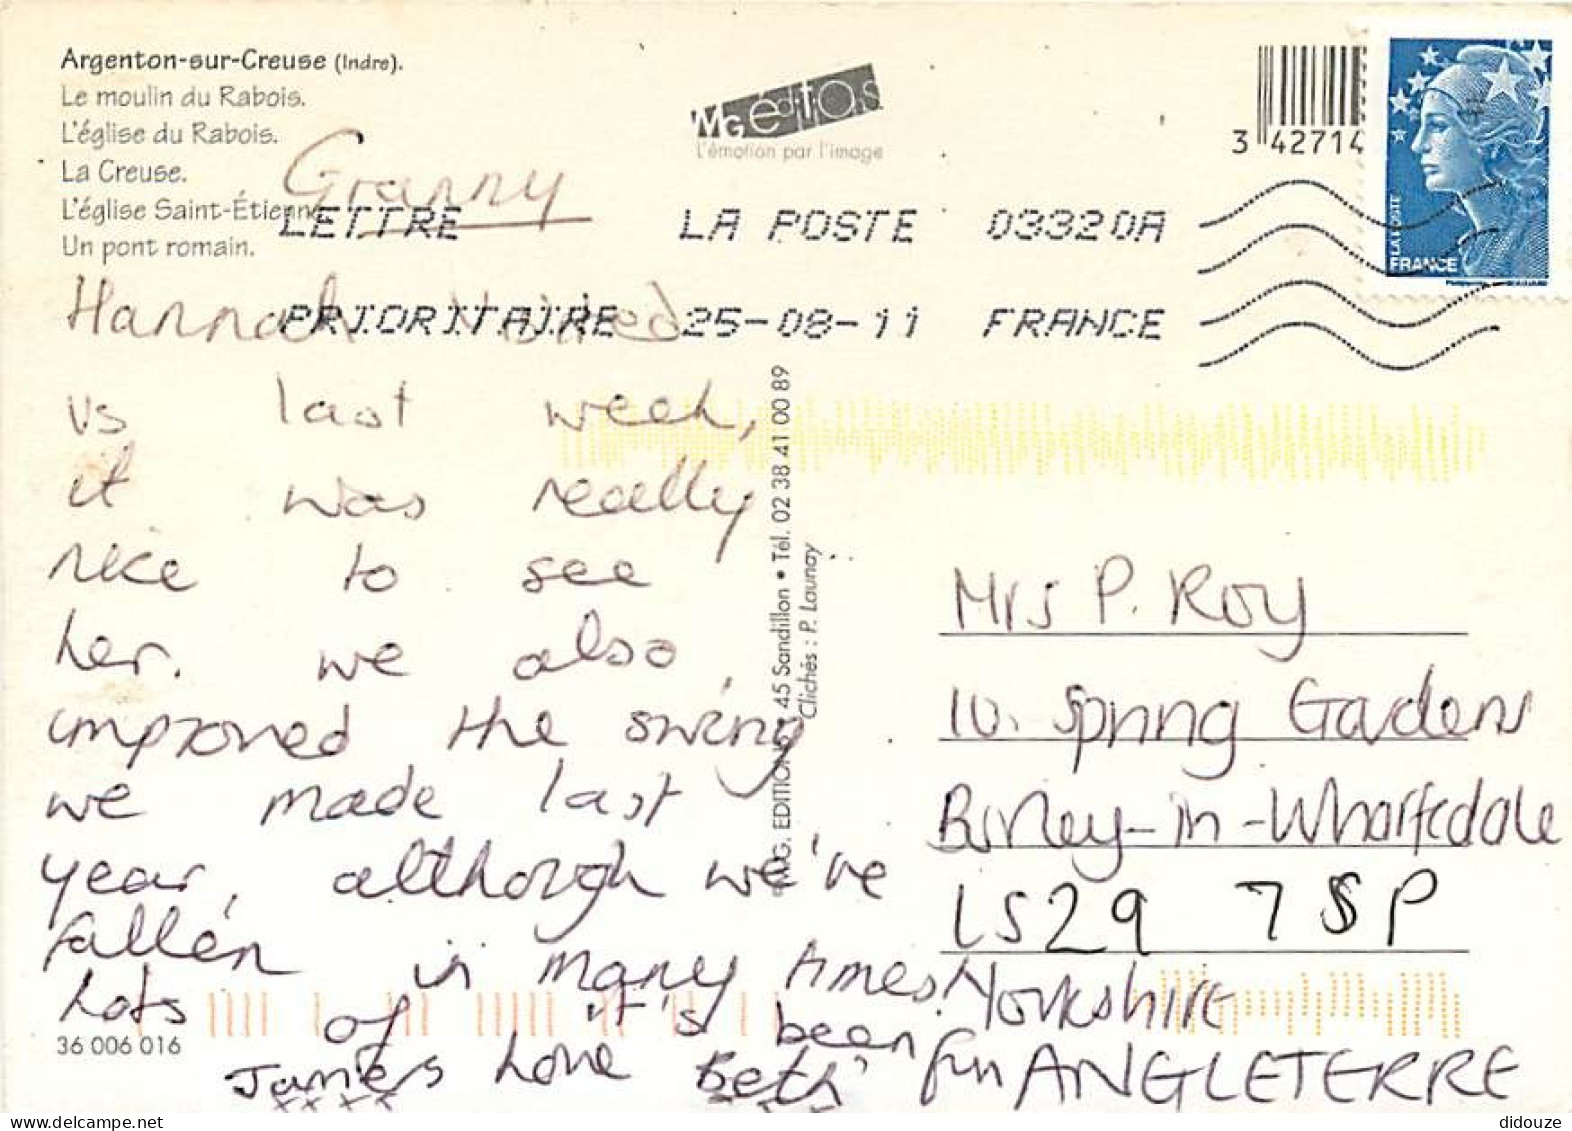 Argenton-sur-Creuse (Indre).
Le moulin du Rabois.
L'église du Rabois.
La Creuse.
L'église Saint-Étienne.
Un pont romain.
MG éditions
l'émotion par l'image
3 42714
LA POSTE
FRANCE
LETTRE LA POSTE 03320A
PRIORITAIRE 25-08-11 FRANCE
Granny
Hannah visited
us last week,
it was really
nice to see
her. we also
improved the swing
we made last
year, although we've
fallen in many times.
it's been fun
Lots of love Beth
James
xx xx
MG. EDITIONS 45 Sandillon • Tél. 02 38 41 00 89
Clichés : P. Launay
Mrs P. Roy
10. Spring Gardens
Burley-in-Wharfedale
LS29 7SP
Yorkshire
ANGLETERRE
36 006 016
didouze